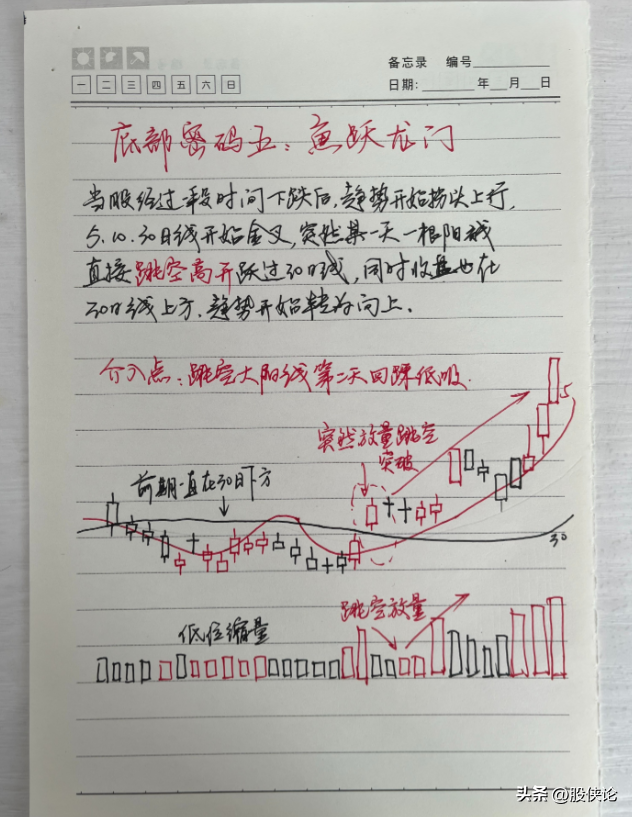 备忘录 编号
一 二 三 四 五 六 日
日期: 年 月 日
底部密码五:鱼跃龙门
当股经过一段时间下跌后,趋势开始拐头上行,
5.10.30日线开始金叉,突然某一天一根阳线
直接跳空高开跃过30日线,同时收盘也在
30日线上方.趋势开始转为向上.
介入点:跳空大阳线第二天回踩低吸.
5
突然放量跳空
突破
前期一直在30日下方
30
跳空放量
低位缩量
头条 @股侠论